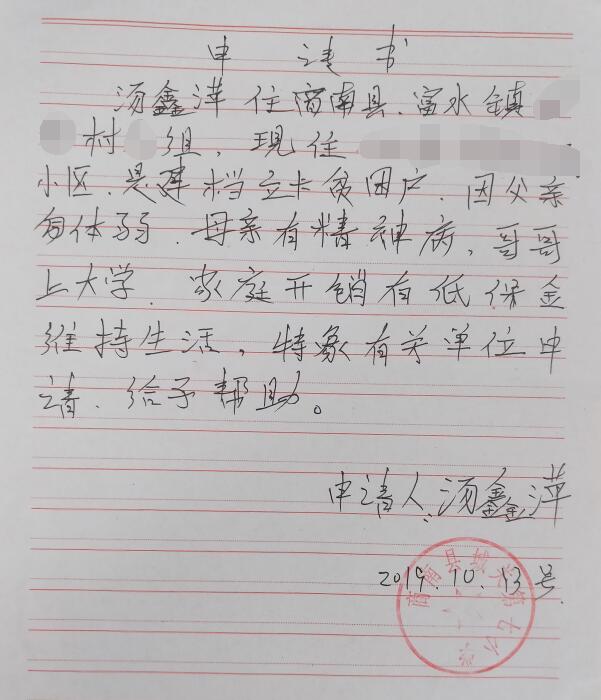 申请书
汤鑫萍住商南县.富水镇
村 组.现住
小区.是建档立卡贫困户.因父亲
身体弱.母亲有精神病,哥哥
上大学.家庭开销有低保金
维持生活,特象有关单位申
请.给予帮助。
申请人:汤鑫萍
2019.10.13号
商南县城关第七小学